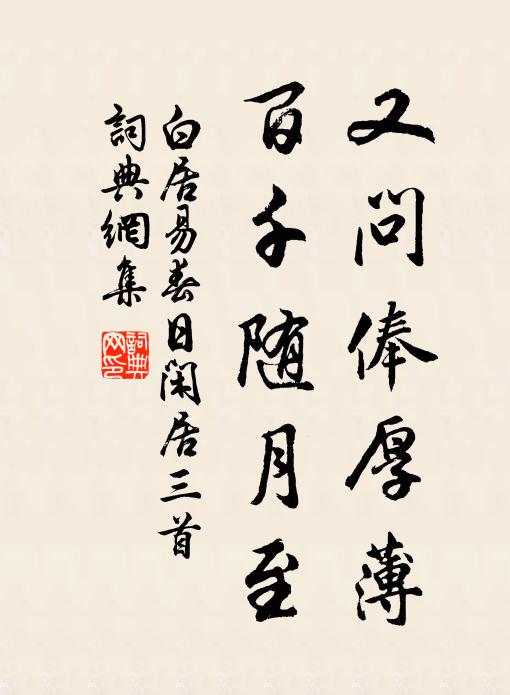 又问俸厚薄
百千随月至
白居易春日闲居三首
詞典網集
詞典
网印